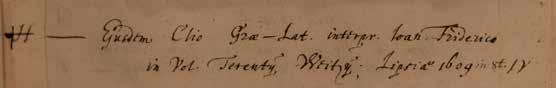 Eiusdem Clio Græ-Lat. interpr. Ioan. Friderico
in Vol. Terentij Lipsiæ 1609 in